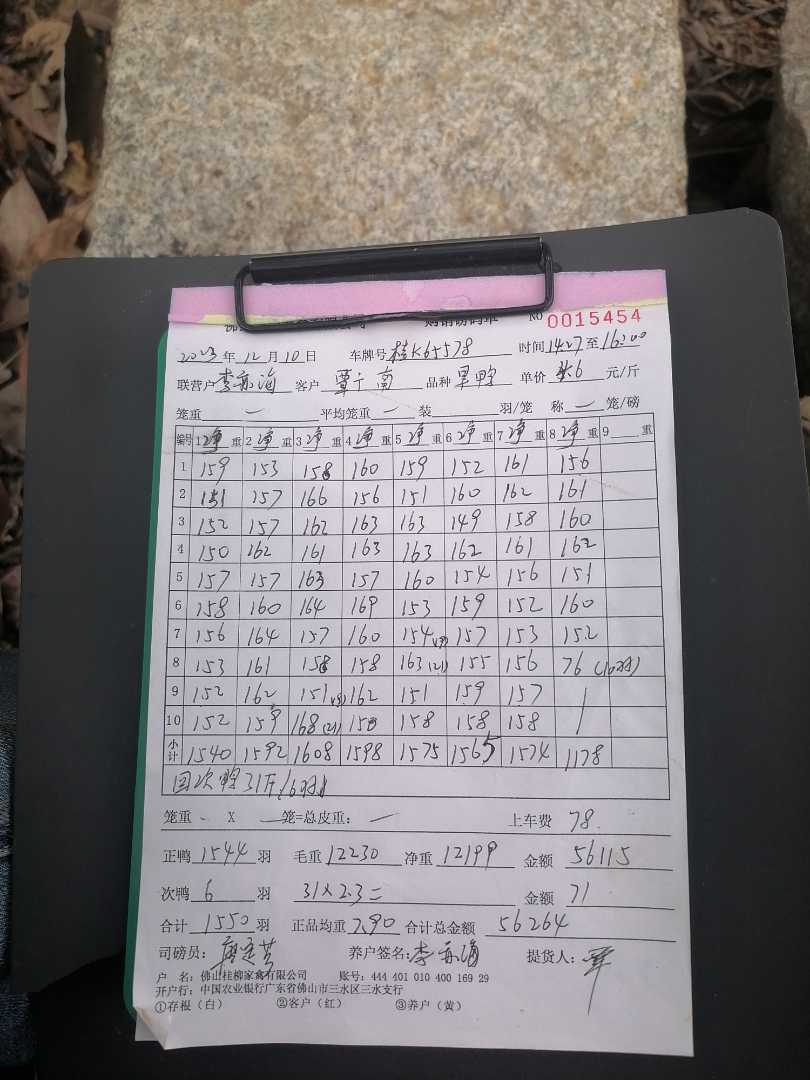 NO 0015454
2023年12月10日 车牌号桂K65578 时间14:27至16:00
联营户李亦海 客户覃广南 品种 单价4.6元/斤
笼重 一 平均笼重 一 装 羽/笼 称 一 笼/磅
编号 1净重 2净重 3净重 4净重 5净重 6净重 7净重 8净重 9 重
1 159 153 158 160 159 152 161 156
2 151 157 166 156 151 160 162 161
3 152 157 162 163 163 149 158 160
4 150 162 161 163 163 162 161 162
5 157 157 163 157 160 154 156 151
6 158 160 164 169 153 159 152 160
7 156 164 157 160 154 157 153 152
8 153 161 158 158 163(21) 155 156 76(10羽)
9 152 162 151 162 151 159 157
10 152 159 168(21) 150 158 158 158
小计 1540 1592 1608 1598 1575 1565 1574 1178
回次鸭31斤(6羽)
笼重 - X 一笼=总皮重: 一 上车费 78
正鸭1544羽 毛重12230 净重12199 金额56115
次鸭 6 羽 31×2.3= 金额 71
合计1550羽 正品均重7.90 合计总金额 56264
司磅员: 养户签名:李亦海 提货人:覃
户 名: 佛山桂柳家禽有限公司 账号: 444 401 010 400 169 29
开户行: 中国农业银行广东省佛山市三水区三水支行
①存根(白) ②客户(红) ③养户(黄)